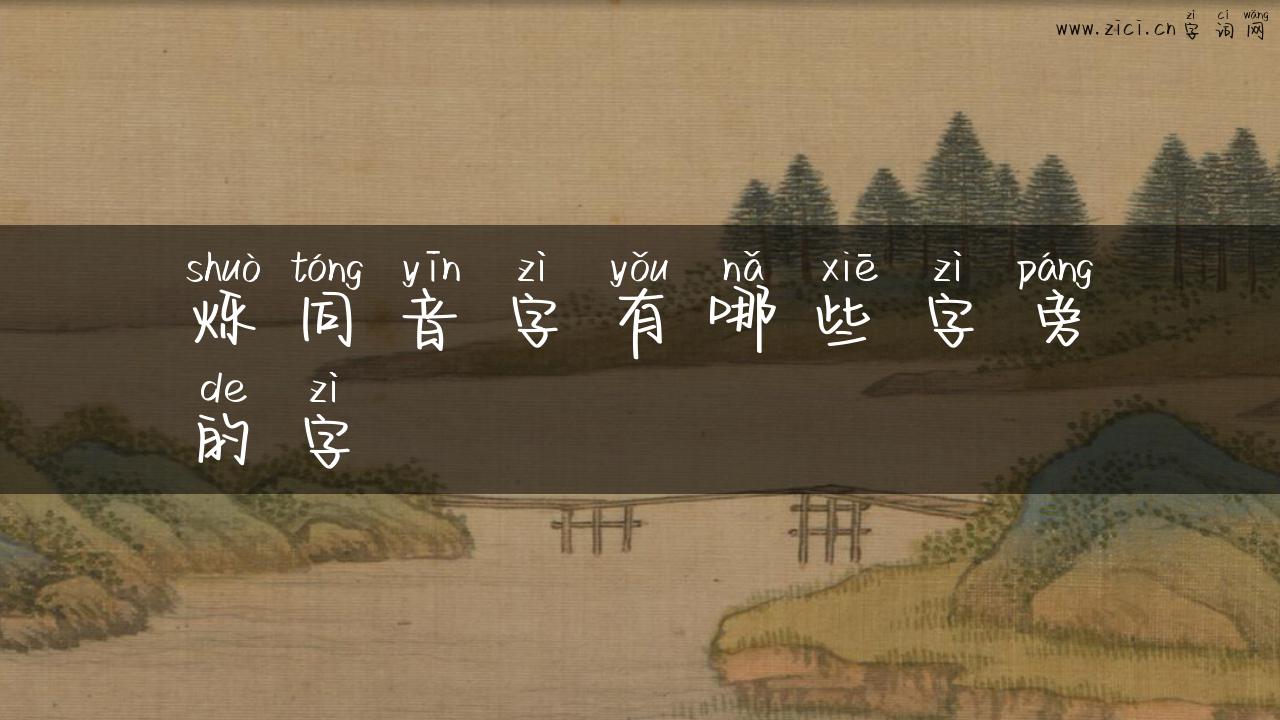 zì cí wǎng
www.zici.cn 字词网
shuò tóng yīn zì yǒu nǎ xiē zì páng
烁同音字有哪些字旁
de zì
的字